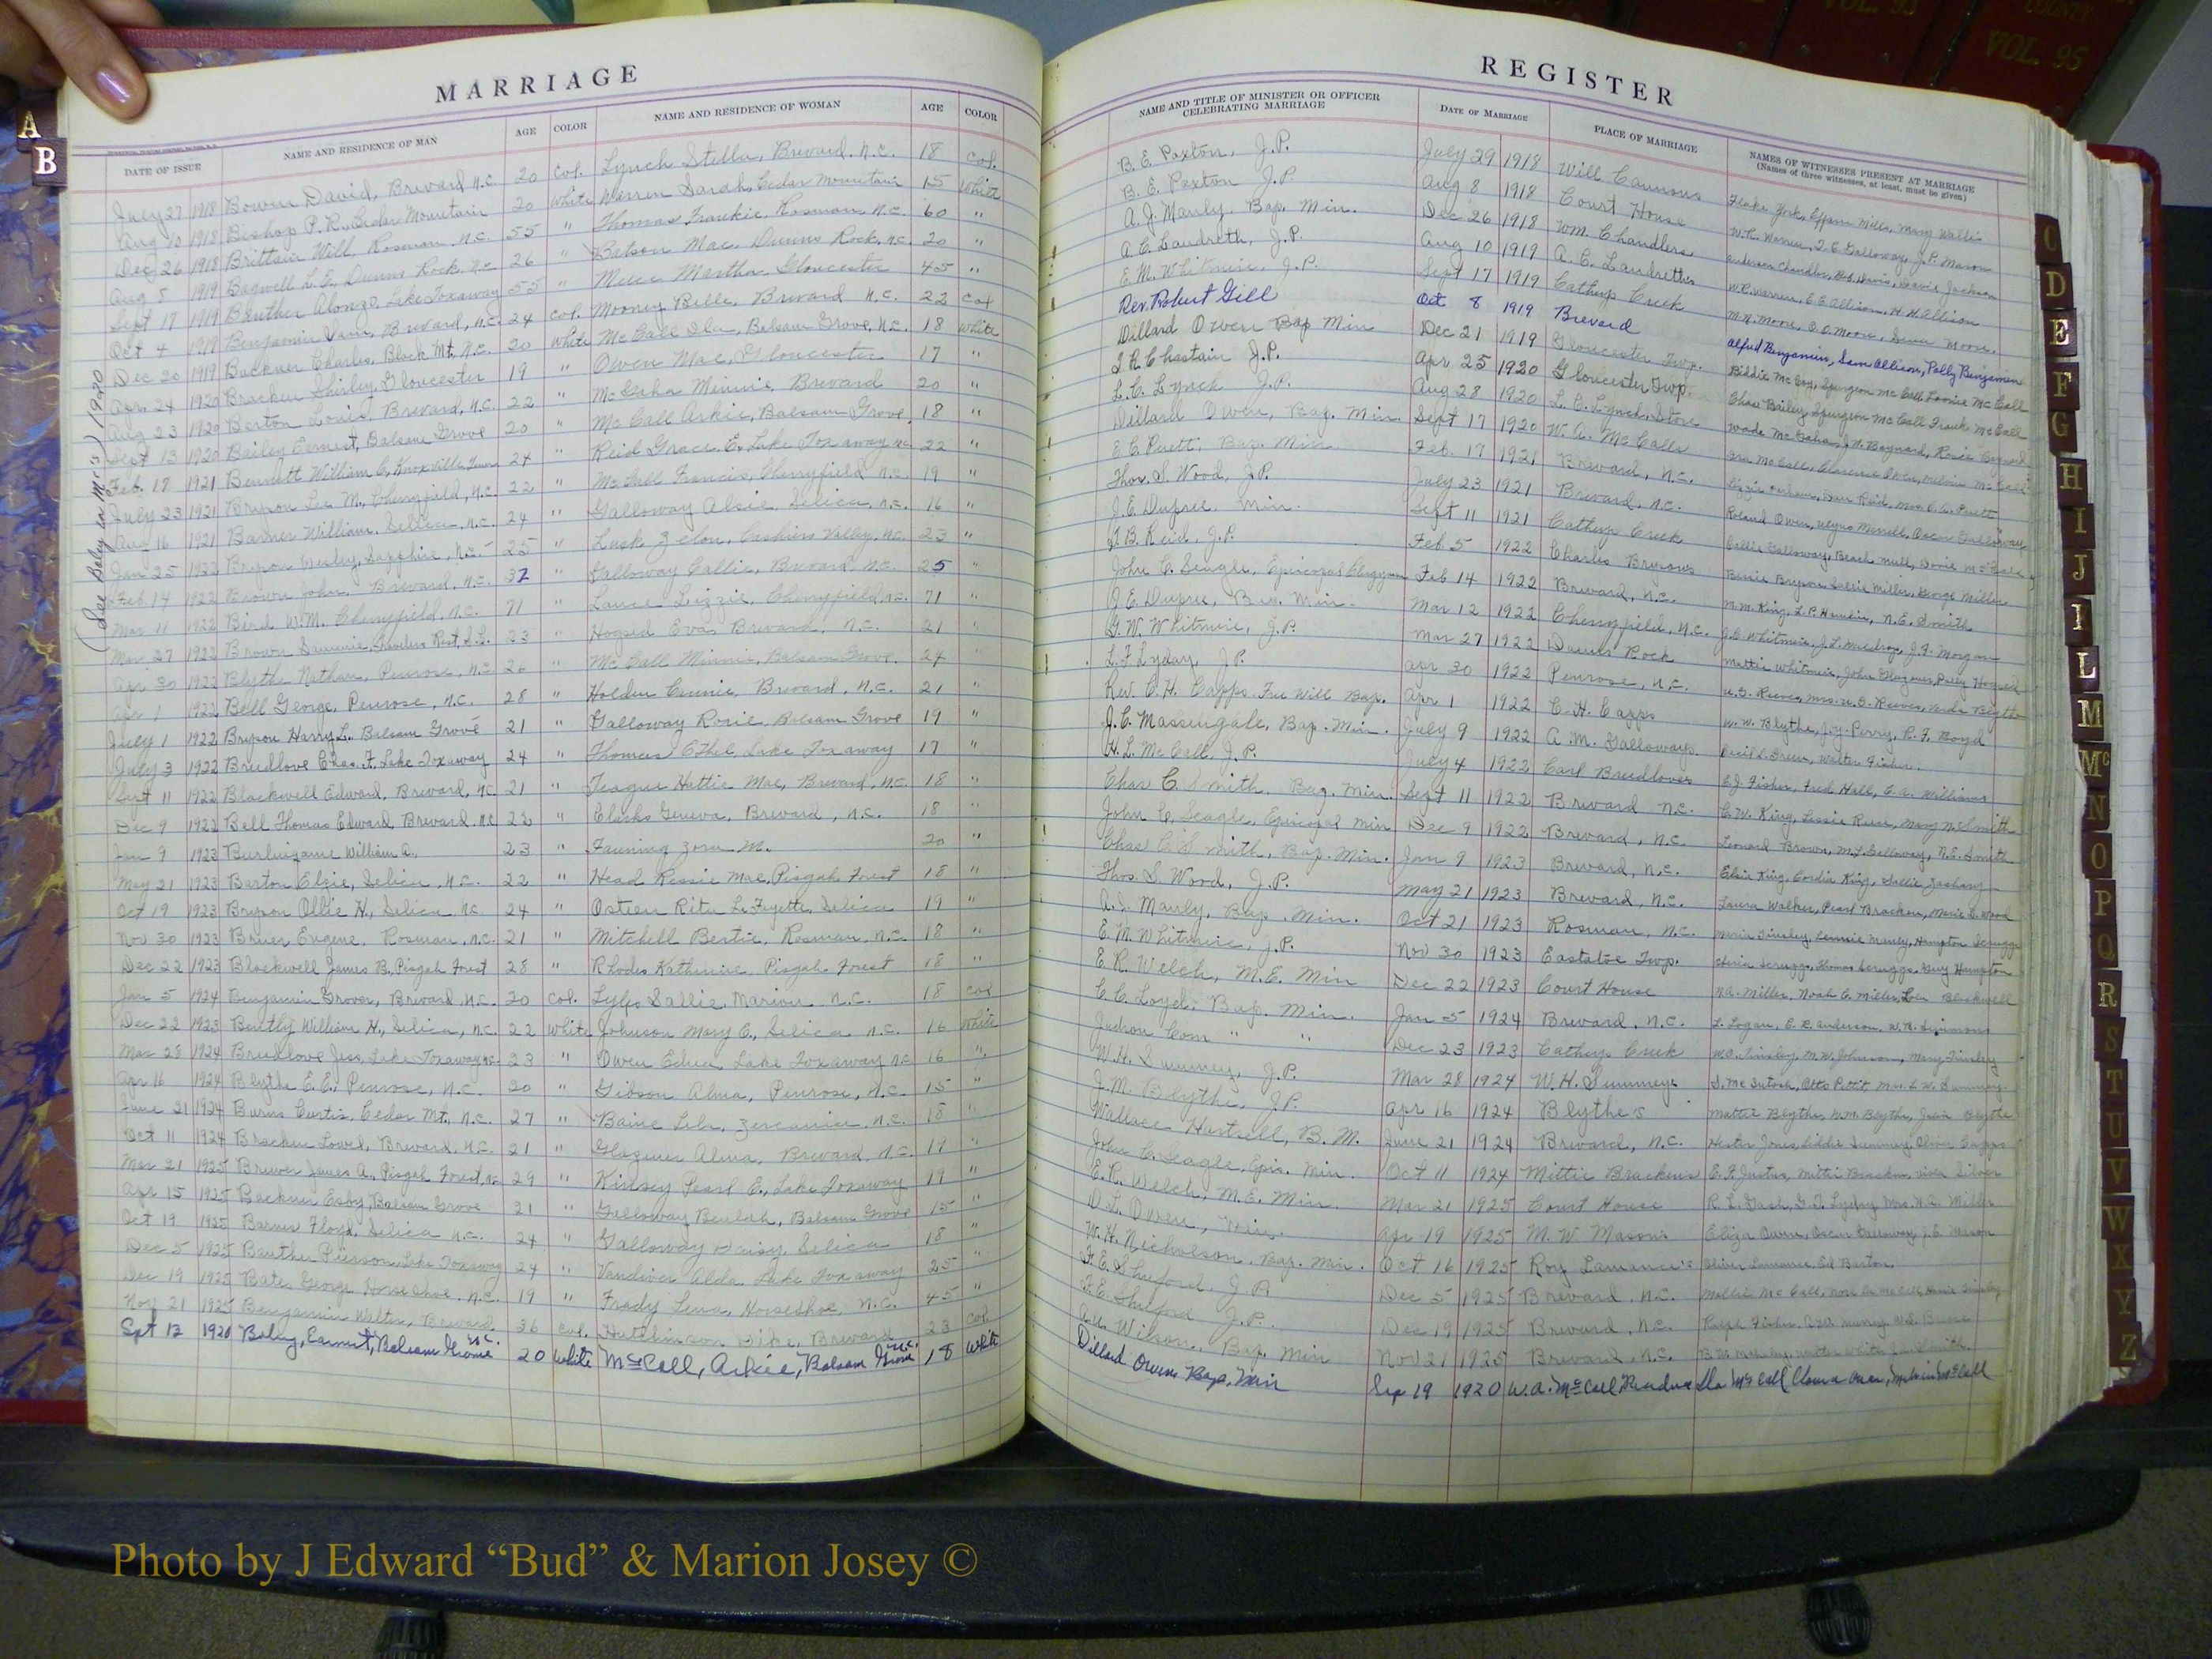 COUNTY
VOL. 93
VOL. 95
MARRIAGE
REGISTER
A
B
DATE OF ISSUE NAME AND RESIDENCE OF MAN AGE COLOR NAME AND RESIDENCE OF WOMAN AGE COLOR NAME AND TITLE OF MINISTER OR OFFICER CELEBRATING MARRIAGE DATE OF MARRIAGE PLACE OF MARRIAGE NAMES OF WITNESSES PRESENT AT MARRIAGE (Names of three witnesses, at least, must be given)
July 27 1918 Bowen David, Brevard N.C. 20 Col. Lynch Stella, Brevard, N.C. 18 Col. B. E. Paxton, J.P. July 29 1918 Will Cannons Flake York, Mills, Mary Wallis
Aug 10 1918 Bishop P. R., Cedar Mountain 20 White Warren Sarah, Cedar Mountain 15 White B. E. Paxton J.P. Aug 8 1918 Court House W. R. Warren, T. C. Galloway, J. P. Mason
Dec 26 1918 Brittain Will, Rosman, N.C. 55 " Thomas Frankie, Rosman N.C. 60 " A. J. Manly, Bap. Min. Dec 26 1918 Wm. Chandlers Anderson Chandler, Davis Jackson
Aug 8 1919 Bagwell L. E., Dunns Rock, N.C. 26 " Batson Mae, Dunns Rock, N.C. 20 " A. C. Landreth, J.P. Aug 10 1919 A. C. Landreths W. R. Warren, E. E. Allison, H. H. Allison
Sept 17 1919 Banther Alonzo, Lake Toxaway 55 " Meece Martha, Gloucester 45 " E. M. Whitmire, J.P. Sept 17 1919 Catheys Creek M. N. Moore, O. C. Moore, Moore
Oct 4 1919 Benjamin Vance, Brevard, N.C. 24 Col. Mooney Belle, Brevard N.C. 22 Col Rev. Robert Gill Oct 8 1919 Brevard Alfred Benjamin, Sam Allison, Polly Benjamin
Dec 20 1919 Buckner Charles, Black Mt, N.C. 20 White McCall Ila, Balsam Grove, N.C. 18 White Dillard Owen Bap Min Dec 21 1919 Gloucester Twp. McCoy, Spurgeon McCall, McCall
Apr. 24 1920 Bracken Shirley, Gloucester 19 " Owen Mae, Gloucester 17 " J. R. Chastain J.P. Apr 25 1920 Gloucester Twp. Chas Bailey, Spurgeon McCall Frank McCall
Aug 23 1920 Barton Louis, Brevard, N.C. 22 " McGaha Minnie, Brevard 20 " L. C. Lynch J.P. Aug 28 1920 L. C. Lynch, Store Wade McGaha, J. H. Baynard, Rosie Baynard
Sept 13 1920 Bailey Earnest, Balsam Grove 20 " McCall Arkie, Balsam Grove, 18 " Dillard Owen, Bap. Min Sept 17 1920 W. A. McCalls Ira McCall, Clarence Owen, Melvin McCall
Feb. 17 1921 Bennett William C, Knoxville, Tenn 24 " Reid Grace E, Lake Toxaway N.C. 22 " E. C. Pruett, Bap. Min Feb. 17 1921 Brevard, N.C. Reid, Mrs. E. C. Pruett
July 23 1921 Bryson Lee M., Cherryfield, N.C. 22 " McCall Francis, Cherryfield N.C. 19 " Thos. S. Wood, J.P. July 23 1921 Brevard, N.C. Roland Owen, Velma Merrill, Oscar Galloway
Aug 16 1921 Barner William, Selica, N.C. 24 " Galloway Alsie, Selica, N.C. 16 " J. E. Dupree, Min. Sept 11 1921 Catheys Creek Callie Galloway, Beach Mull, David McCall
Jan 25 1922 Bryson Wesley, Sapphire, N.C. 25 " Lusk Zelou, Cashiers Valley, N.C. 23 " J. B. Reid, J.P. Feb. 5 1922 Charles Brysons Bessie Bryson, Sallie Miller, George Miller
Feb. 14 1922 Brown John, Brevard, N.C. 32 " Galloway Callie, Brevard N.C. 25 " John C. Seagle, Episcopal Clergyman Feb 14 1922 Brevard, N.C. M. M. King, L. P. Hamlin, N. E. Smith
Mar 11 1922 Bird W. M. Cherryfield, N.C. 71 " Lance Lizzie, Cherryfield, N.C. 71 " J. E. Dupree, Bap. Min. Mar 12 1922 Cherryfield, N.C. J. C. Whitmire, J. L. Waldrop, J. F. Morgan
Mar 27 1922 Brown Dannie, 23 " Hogsed Eva, Brevard, N.C. 21 " G. W. Whitmire, J.P. Mar 27 1922 Dunns Rock Mattie Whitmire, John Glazener, Hogsed
Apr 30 1922 Blythe Nathan, Penrose, N.C. 26 " McCall Minnie, Balsam Grove. 24 " L. F. Lyday, J.P. Apr 30 1922 Penrose, N.C. U. G. Reeves, Mrs. U. G. Reeves, Blythe
Apr 1 1922 Bell George, Penrose, N.C. 28 " Holden Connie, Brevard, N.C. 21 " Rev. C. H. Capps Free Will Bap. Apr 1 1922 C. H. Capps W. W. Blythe, J. Y. Perry, P. F. Boyd
July 1 1922 Bryson Harry L., Balsam Grove 21 " Galloway Rosie, Balsam Grove 19 " J. C. Massingale, Bap. Min. July 9 1922 A. M. Galloways. Owen, Walter Fisher.
July 3 1922 Breedlove Chas. F., Lake Toxaway 24 " Thomas Ethel, Lake Toxaway 17 " H. L. McCall, J.P. July 4 1922 Carl Breedloves E. J. Fisher, Fred Hall, C. A. Williams
Sept 11 1922 Blackwell Edward, Brevard, N.C. 21 " Teague Hattie Mae, Brevard, N.C. 18 " Chas C. Smith. Bap. Min. Sept 11 1922 Brevard N.C. C. W. King, Reese, Mary N. Smith
Dec 9 1922 Bell Thomas Edward, Brevard, N.C. 22 " Clacks Geneva, Brevard, N.C. 18 " John C. Seagle, Episcopal Min Dec 9 1922 Brevard, N.C. Leonard Brown, M. L. Galloway, N. E. Smith
Jan 9 1923 Burlingame William A. 23 " Fanning Zora M. 20 " Chas C. Smith, Bap. Min. Jan 9 1923 Brevard, N.C. Elsie King, Cordia King, Sallie Zachary
May 21 1923 Barton Elzie, Selica, N.C. 22 " Head Ressie Mae, Pisgah Forest 18 " Thos. S. Wood, J.P. May 21 1923 Brevard, N.C. Laura Walker, Pearl Bracken, Marie S. Wood
Oct 19 1923 Bryson Ollie H., Selica N.C. 24 " Osteen Rita LaFayette, Selica 19 " A. J. Manly, Bap. Min. Oct 21 1923 Rosman, N.C. Tinsley, Manly, Hampton Scruggs
Nov 30 1923 Briver Eugene, Rosman, N.C. 21 " Mitchell Bertie, Rosman, N.C. 18 " E. M. Whitmire, J.P. Nov 30 1923 Eastatoe Twp. Scruggs, Thomas Scruggs, Guy Hampton
Dec 22 1923 Blackwell James B., Pisgah Forest 28 " Rhodes Katherine, Pisgah Forest 18 " E. R. Welch, M.E. Min Dec 22 1923 Court House N. A. Miller, Noah C. Miller, Lola Blackwell
Jan 5 1924 Benjamin Grover, Brevard, N.C. 20 Col. Lyles Sallie, Marion, N.C. 18 Col C. C. Loyd, Bap. Min. Jan 5 1924 Brevard, N.C. L. Logan, E. R. Anderson, W. N. Simmons
Dec 22 1923 Bently William H., Selica, N.C. 22 White Johnson Mary C., Selica N.C. 16 White Judson Corn " " Dec 23 1923 Catheys Creek W. O. Tinsley, M. W. Johnson, Mary Tinsley
Mar 28 1924 Breedlove Jess, Lake Toxaway N.C. 23 " Owen Edna, Lake Toxaway, N.C. 16 " W. H. Summey, J.P. Mar 28 1924 W. H. Summeys S. McIntosh, Otto Pettit, Mrs. L. W. Summey
Apr 16 1924 Blythe E. E., Penrose, N.C. 20 " Gibson Alma, Penrose, N.C. 15 " J. M. Blythe, J.P. Apr 16 1924 Blythe's Mattie Blythe, W. M. Blythe, Julia Blythe
June 21 1924 Burns Curtis, Cedar Mt., N.C. 27 " Baine Lola, Zirconia, N.C. 18 " Wallace Hartsell, B. M. June 21 1924 Brevard, N.C. Hester Jones, Summey, Oliver Capps
Oct 11 1924 Bracken Lowed, Brevard, N.C. 21 " Glazener Alma, Brevard, N.C. 19 " John C. Seagle, Epis. Min. Oct 11 1924 Mittie Brackens E. F. Justus, Mittie Bracken, Silver
Mar 21 1925 Brewer James A., Pisgah Forest, N.C. 29 " Kinsey Pearl E., Lake Toxaway 19 " E. R. Welch, M.E. Min. Mar 21 1925 Court House R. L. Gash, G. T. Lyday, Mrs. N. A. Miller
Apr 15 1925 Buckner Esby, Balsam Grove 21 " Galloway Beulah, Balsam Grove 15 " D. L. Owen, Min. Apr 19 1925 M. W. Masons Eliza Owen, Oscar Galloway, J. E. Mason
Oct 19 1925 Barnes Floyd, Selica N.C. 24 " Galloway Daisy, Selica 18 " W. H. Nicholson, Bap. Min. Oct 16 1925 Roy Lamance's Oliver Lamance, Ed Barton,
Dec 5 1925 Banther Pierson, Lake Toxaway 24 " Vandiver Alda, Lake Toxaway 25 " F. E. Shuford, J.P. Dec 5 1925 Brevard, N.C. Mollie McCall, McCall,
Dec 19 1925 Bates George, Horse Shoe, N.C. 19 " Frady Lena, Horseshoe, N.C. 45 " F. E. Shuford J.P. Dec 19 1925 Brevard, N.C. Ralph Fisher,
Nov 21 1925 Benjamin Walter, Brevard, N.C. 36 Col. Hutchinson, Brevard N.C. 23 Col. A. U. Wilson, Bap. Min Nov 21 1925 Brevard, N.C. Walter White,
Spt 13 1920 Baley, Earnest, Balsam Grove 20 White McCall, Arkie, Balsam Grove 18 White Dillard Owen Bap. Min Sep 19 1920 W. A. McCall Residence Ila McCall Owen, Melvin McCall
(See Baley in M's) 1920
C
D
E
F
G
H
I
J
L
M
Mc
N
O
P
Q
R
S
T
U
V
W
X
Y
Z
Photo by J Edward “Bud” & Marion Josey ©